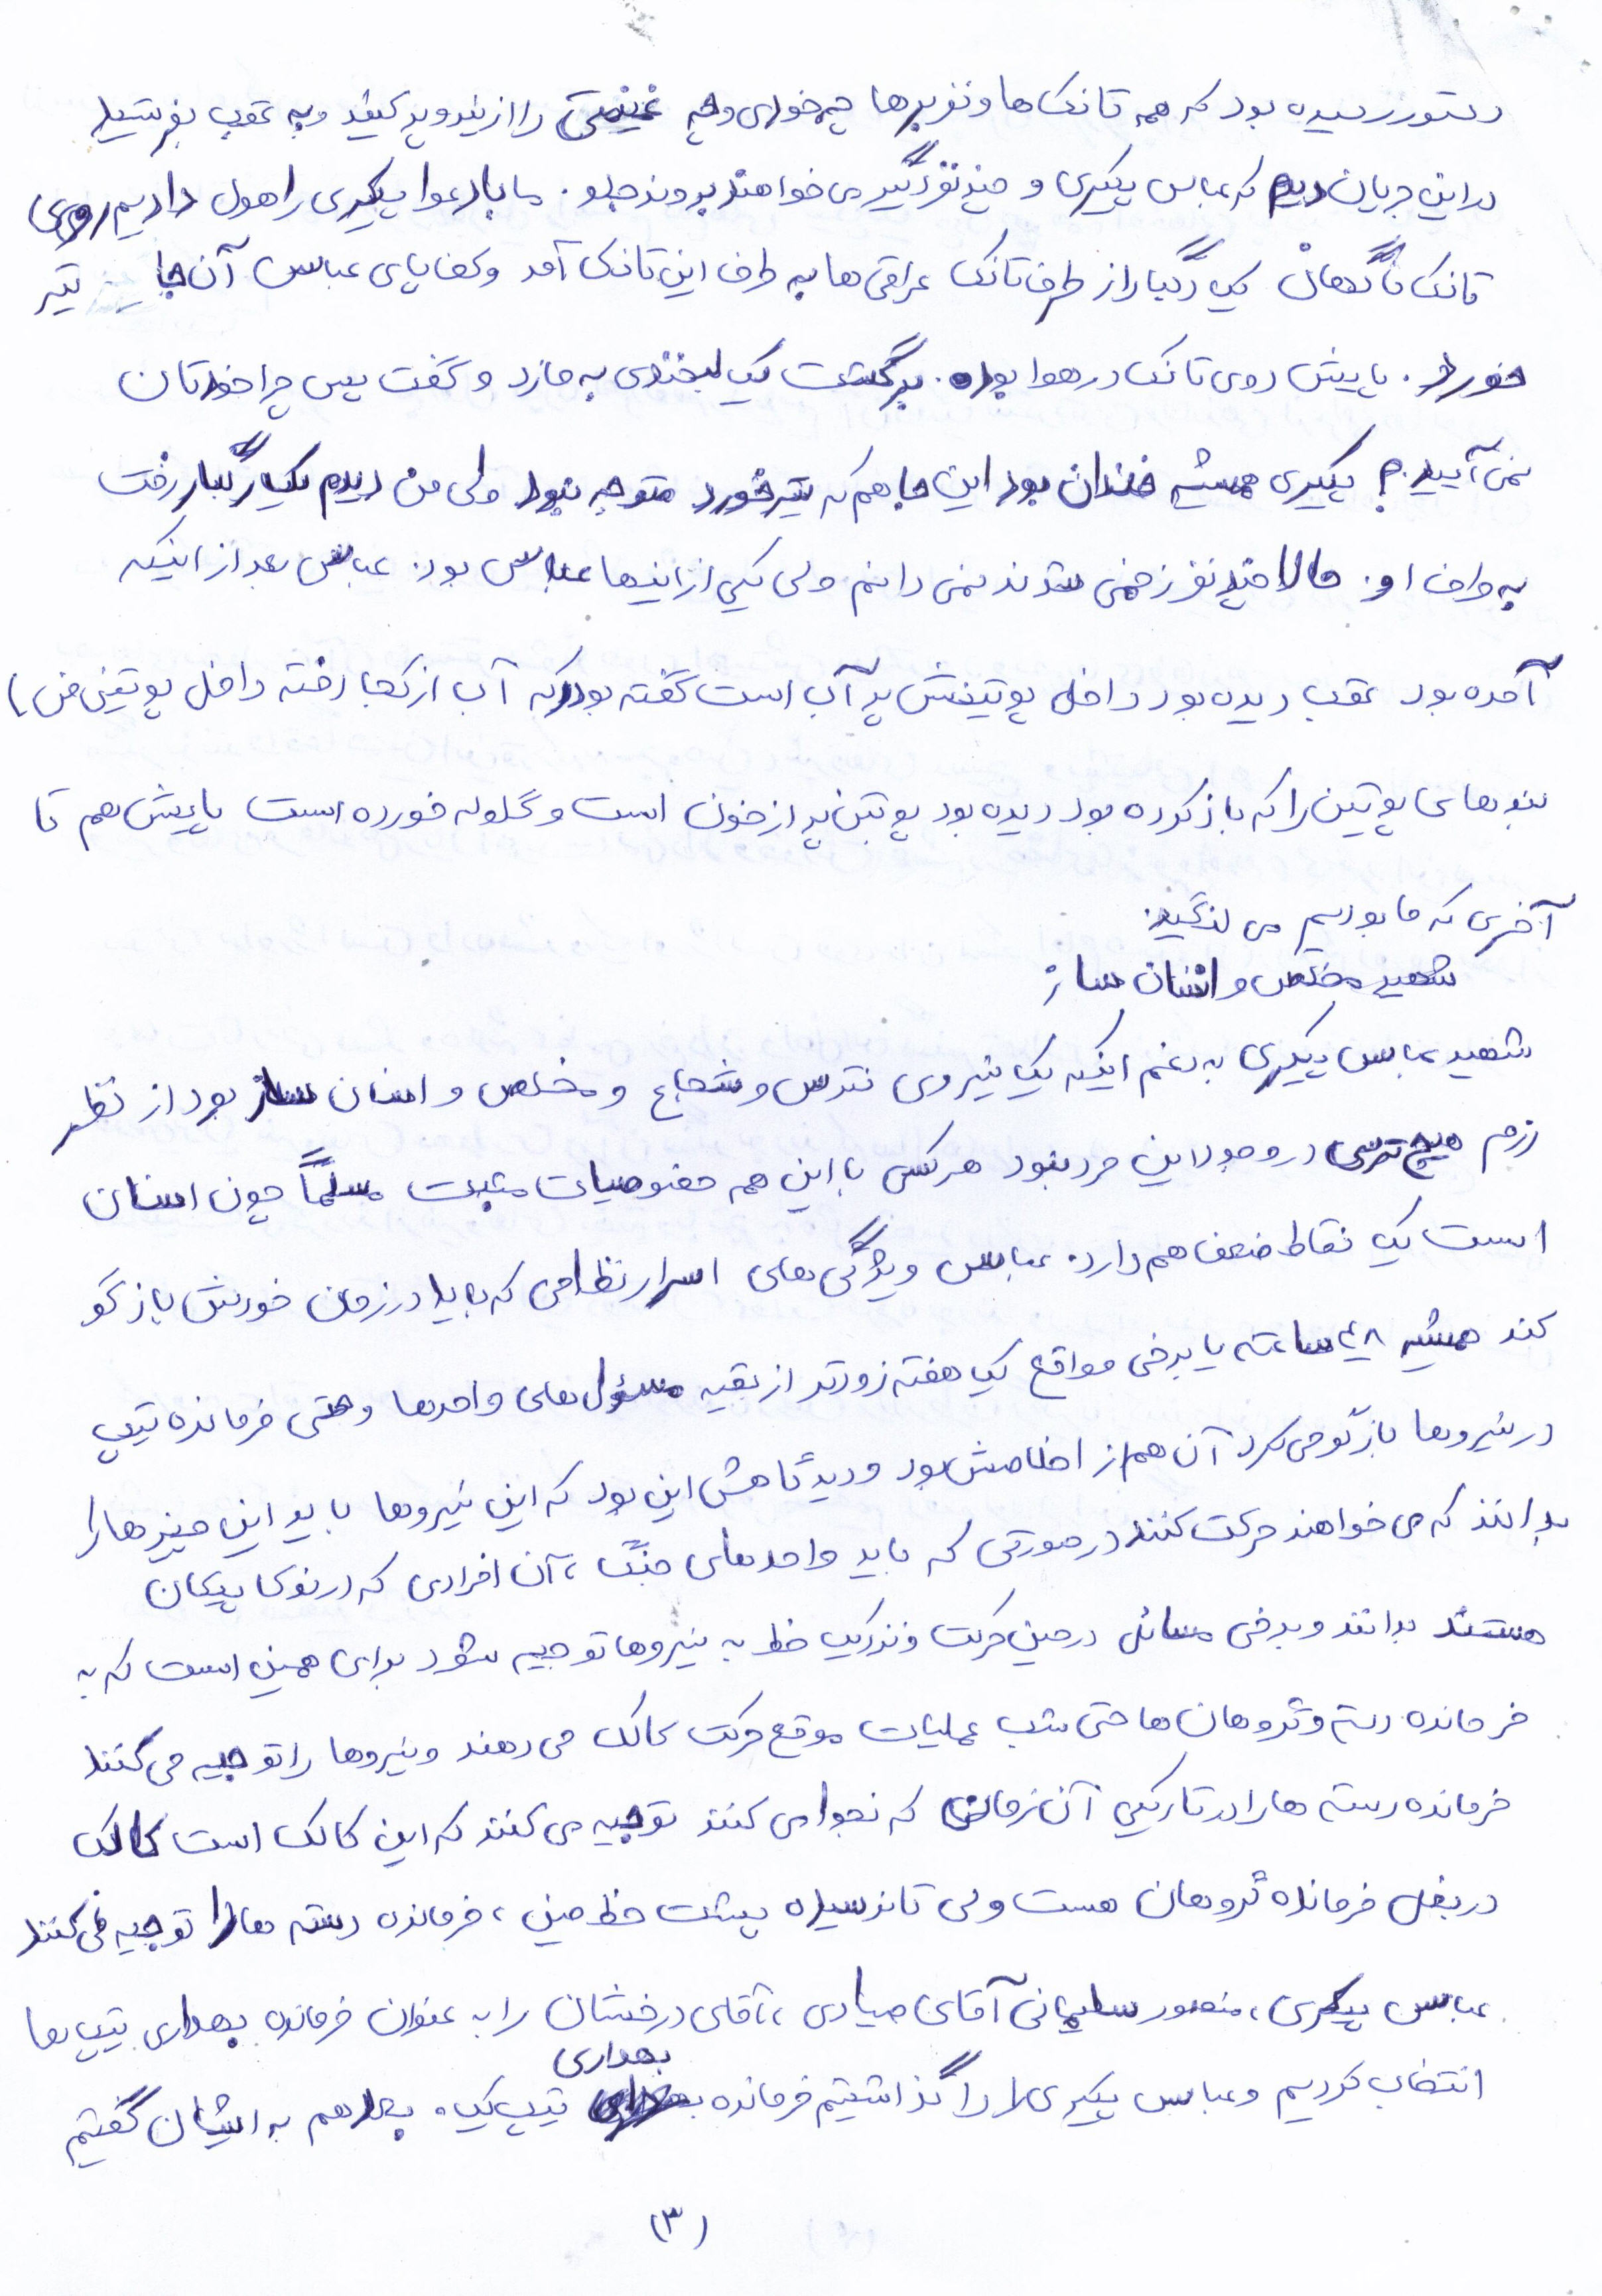 دستور رسیده بود که همه تانک ها و نفربرها چه خودی و چه غنیمتی را از زیر دوپر کنید و به عقب بفرستید
در این جریان دیدم که عباس پیکری و چند نفر دیگیر می خواهند بروند جلو. ما با دعوا پیکری را هول دادیم روی
تانک ناگهان یک رگبار از طرف تانک عراقی ها به طرف این تانک آمد و کف پای عباس آن جا تیر
خورد. پاییش روی تانک در هوا بود. برگشت یک لبخندی به ما زد و گفت پس چرا خودتان
نمی آیید؟ پیکری همیشه خندان بود این جا هم که تیر خورد متوجه نبود ولی من دیدم یک رگبار رفت
به طرف او. حالا چند نفر زخمی شدند نمی دانم ولی یکی از اینها عباس بود. عباس بعد از اینکه
آمده بود عقب دیده بود داخل پوتینش پر آب است گفته بود که آب از کجا رفته داخل پوتینی من)
بندهای پوتین را که باز کرده بود دیده بود پوتین پر از خون است و گلوله خورده است پاییش هم تا
آخری که ما بودیم می لنگید.
شهید مخلص و انسان ساز
شهید عباس پیکری به رغم اینکه یک نیروی نترس و شجاع و مخلص و انسان ساز بود از نظر
رزم هیچ ترسی در وجود این مرد نبود هر کس با این همه خصوصیات مثبت مسلماً چون انسان
است یک نقاط ضعف هم دارد. عباس ویژگی های اسرار نظامی که باید در زمان خودش بازگو
کند همیشه ۴۸ ساعته یا برخی مواقع یک هفته زودتر از بقیه مسئول های واحدها و حتی فرمانده تیپ
در نیروها بازگو می کرد آن هم از اخلاصش بود و دیدگاهش این بود که این نیروها باید این چیزها را
بدانند که می خواهند حرکت کنند در صورتی که باید واحدهای جنگ، آن افرادی که در نوک پیکان
هستند بدانند و برخی مسائل در حین حرکت و نزدیک خط به نیروها توجیه شود برای همین است که به
فرمانده دسته و گروهان ها حتی شب عملیات موقع حرکت کالک می دهند و نیروها را توجیه می کنند
فرمانده دسته ها را در تاریکی آن زمانی که نجوا می کنند توجیه می کنند که این کالک است کالک
در بغل فرمانده گروهان هست ولی تا نرسیده پشت خط مین، فرمانده دسته ها را توجیه نمی کنند
عباس پیکری، منصور سلیمانی آقای صیادی، آقای درخشان را به عنوان فرمانده بهداری تیپ ها
انتخاب کردیم و عباس پیکری را گذاشتیم فرمانده بهداری تیپ یک. بعد هم به ایشان گفتیم
(۳)